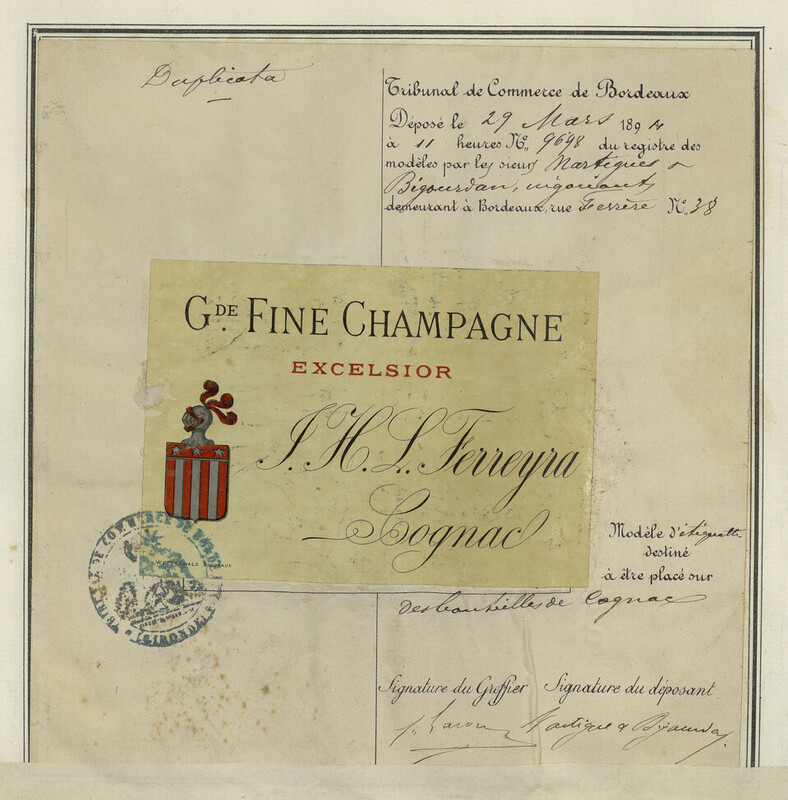 Duplicata
Tribunal de Commerce de Bordeaux
Déposé le 29 Mars 1894
à 11 heures N° 9698 du registre des
modèles par les sieurs Martigues &
Bégourdan, négociants
demeurant à Bordeaux, rue Ferrère N° 38
GDE FINE CHAMPAGNE
EXCELSIOR
J. H. L. Ferreyra
Cognac
BORDEAUX
TRIBUNAL DE COMMERCE DE BORDEAUX
Modèle d'étiquette
destiné
à être placé sur
des bouteilles de Cognac
Signature du Greffier Signature du déposant
Martigue & Bégourdan